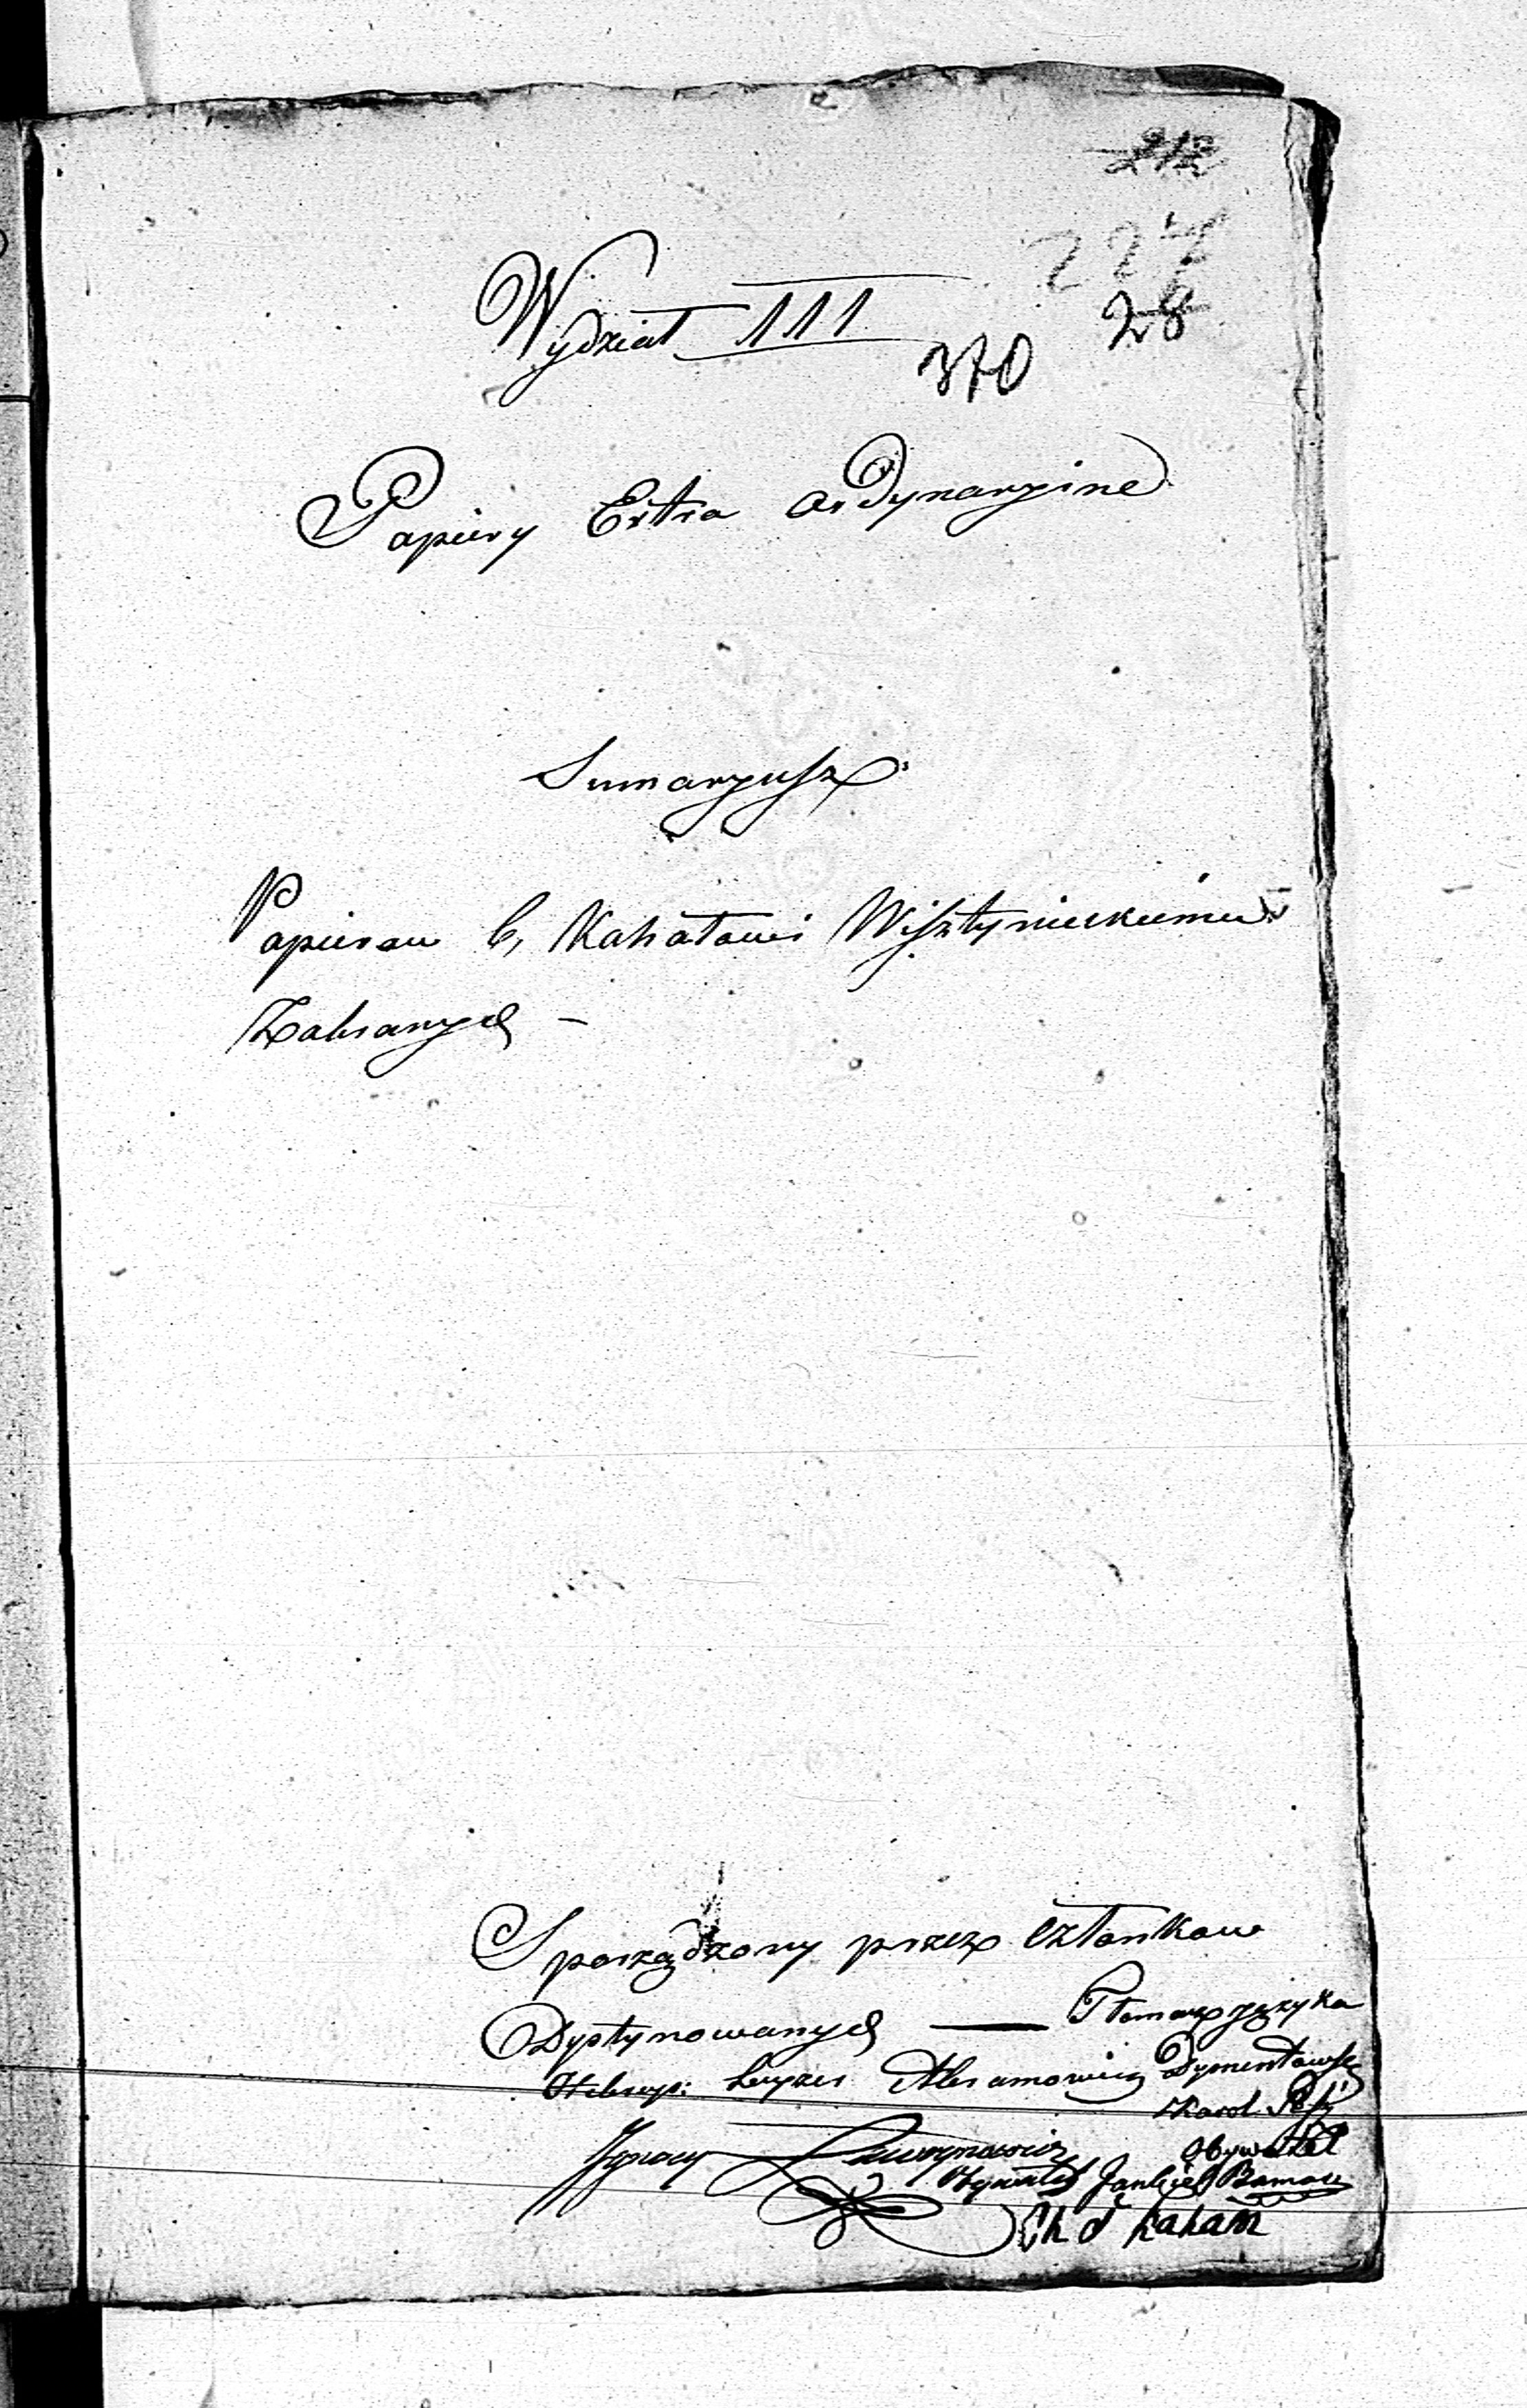 212
227
28
Wydział III
370
Papiery Extra ordynaryine
Sumaryusz
Papierow b, Kahałowi Wisztynieckiemu
Zabranych –
Sporządzony przez Członkow
Dystynowanych — Tłomacz języka
Hebrayi: Leyzer Abramowicz Dymentowsg
Karol
Ignacy Obywatel
Obywatel Jankiel
Kahan